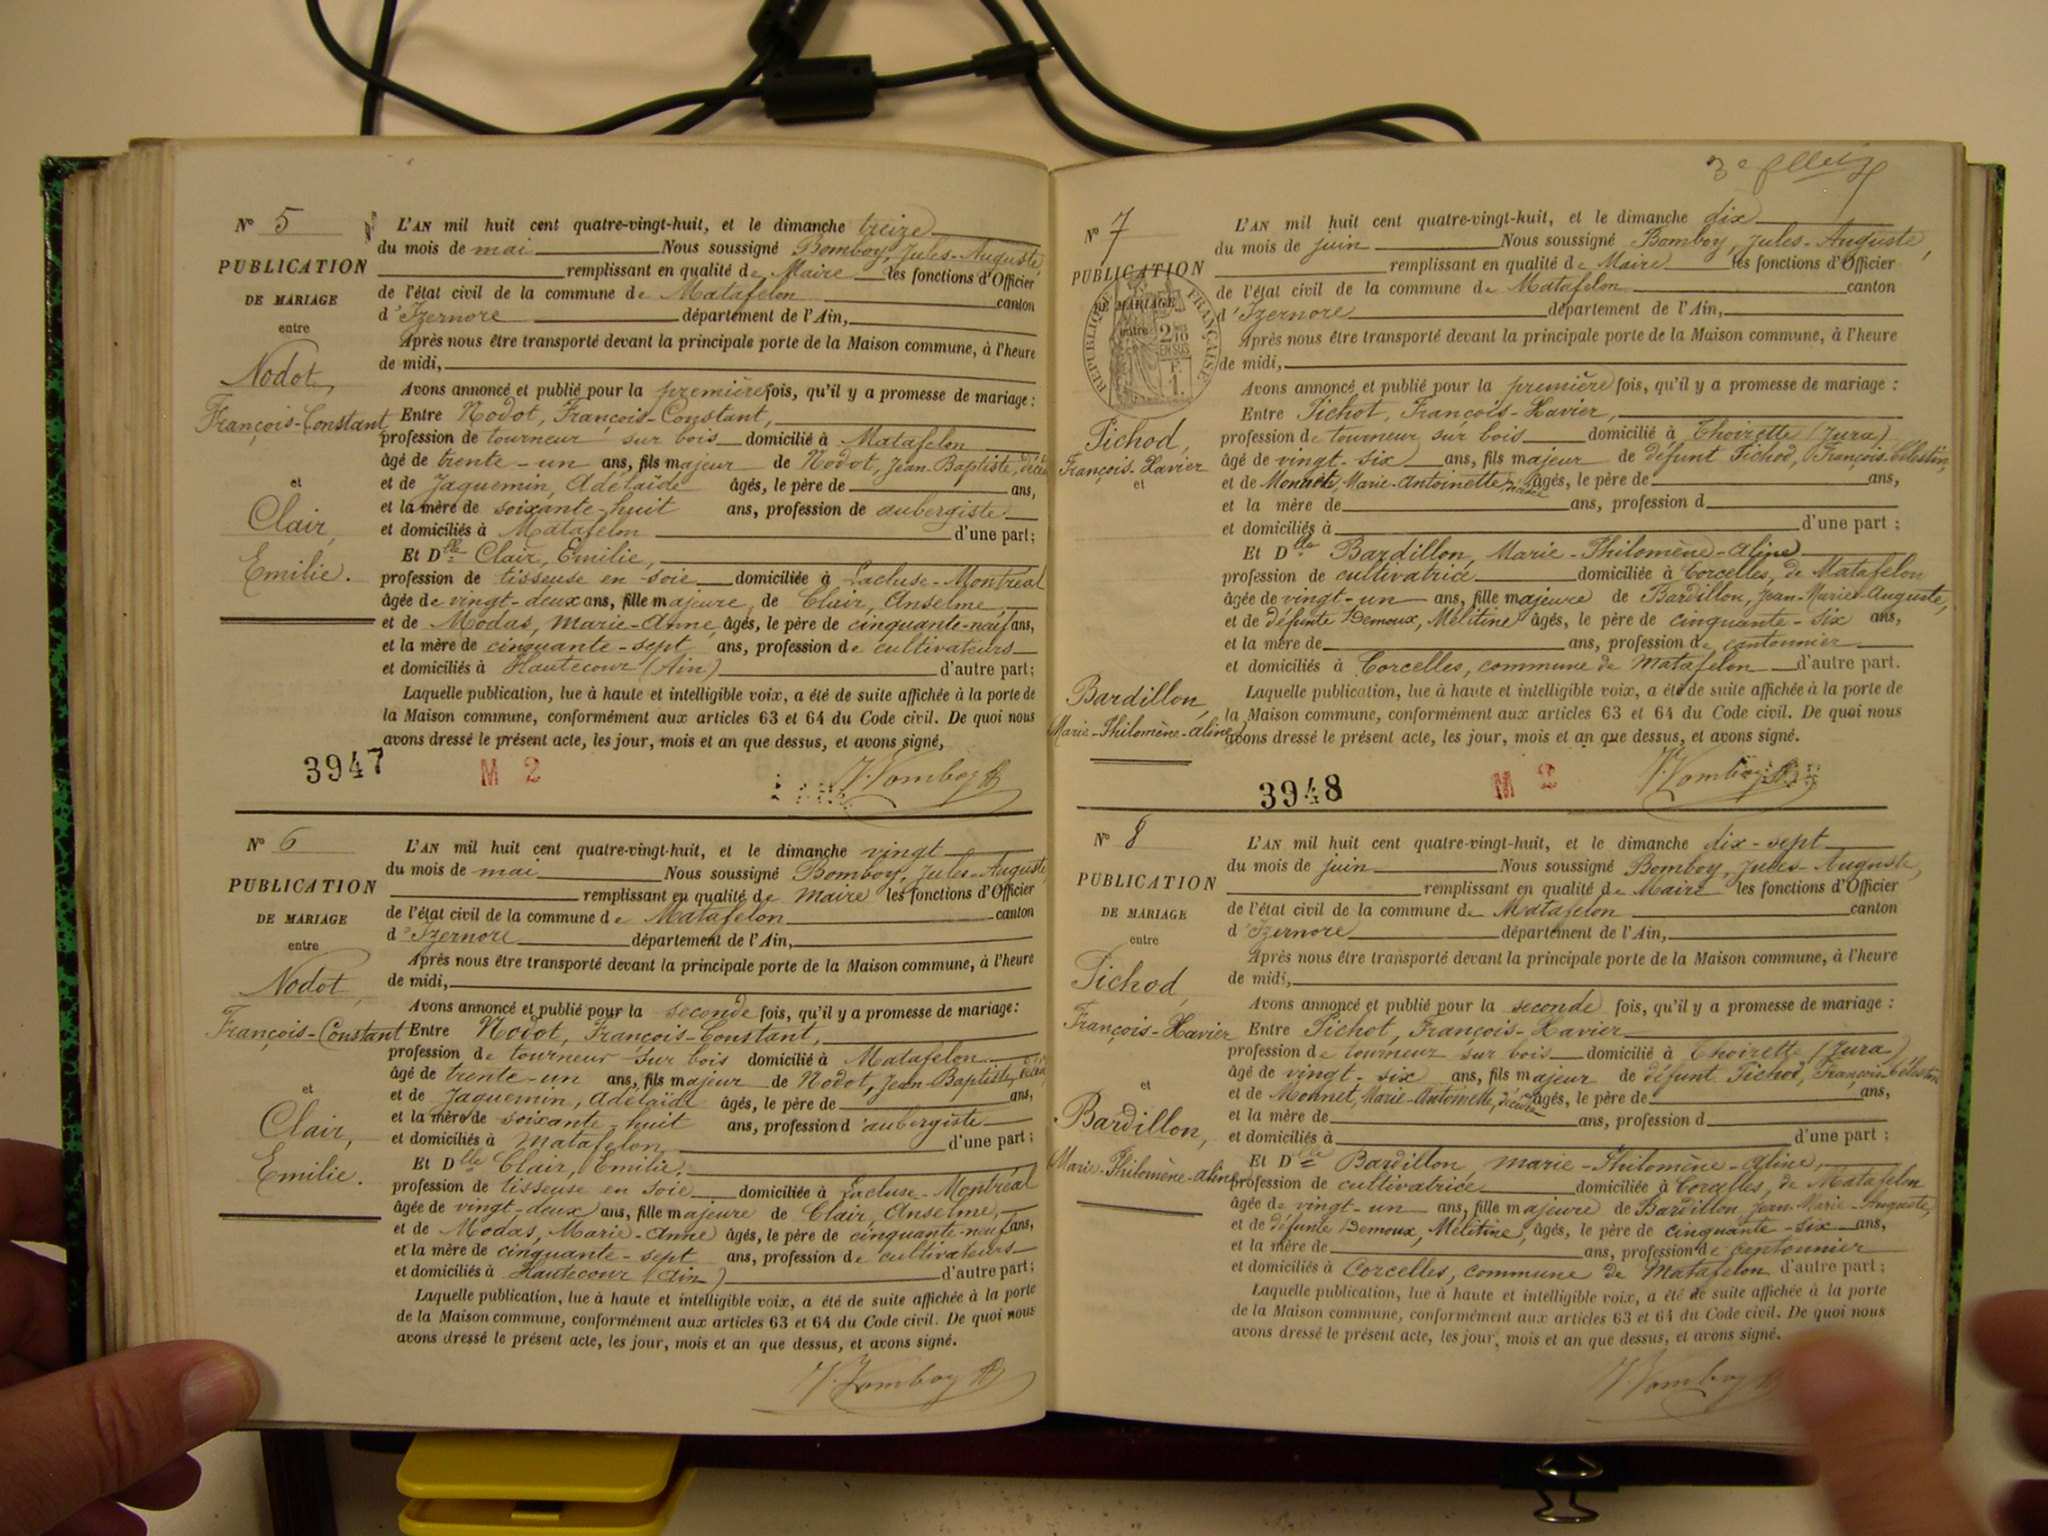 N° 5
PUBLICATION
DE MARIAGE
entre
Nodot,
François-Constant
et
Clair,
Emilie.
L'AN mil huit cent quatre-vingt-huit, et le dimanche treize
du mois de mai Nous soussigné Bomboy, Jules-Auguste,
remplissant en qualité de Maire les fonctions d'Officier
de l'état civil de la commune de Matafelon canton
d'Izernore département de l'Ain,
Après nous être transporté devant la principale porte de la Maison commune, à l'heure
de midi,
Avons annoncé et publié pour la première fois, qu'il y a promesse de mariage :
Entre Nodot, François-Constant,
profession de tourneur sur bois domicilié à Matafelon
âgé de trente-un ans, fils majeur de Nodot, Jean-Baptiste,
et de Jaquemin, Adélaïde âgés, le père de ans,
et la mère de soixante-huit ans, profession de aubergiste
et domiciliés à Matafelon d'une part;
Et Dlle Clair, Emilie,
profession de tisseuse en soie domiciliée à Lacluse-Montréal
âgée de vingt-deux ans, fille majeure de Clair, Anselme,
et de Modas, Marie-Anne, âgés, le père de cinquante-neuf ans,
et la mère de cinquante-sept ans, profession de cultivateurs
et domiciliés à Hautecour (Ain) d'autre part;
Laquelle publication, lue à haute et intelligible voix, a été de suite affichée à la porte de
la Maison commune, conformément aux articles 63 et 64 du Code civil. De quoi nous
avons dressé le présent acte, les jour, mois et an que dessus, et avons signé,
J. Bomboy
3947 M 2
N° 6
PUBLICATION
DE MARIAGE
entre
Nodot,
François-Constant
et
Clair,
Emilie.
L'AN mil huit cent quatre-vingt-huit, et le dimanche vingt
du mois de mai Nous soussigné Bomboy, Jules-Auguste,
remplissant en qualité de Maire les fonctions d'Officier
de l'état civil de la commune de Matafelon canton
d'Izernore département de l'Ain,
Après nous être transporté devant la principale porte de la Maison commune, à l'heure
de midi,
Avons annoncé et publié pour la seconde fois, qu'il y a promesse de mariage :
Entre Nodot, François-Constant,
profession de tourneur sur bois domicilié à Matafelon
âgé de trente-un ans, fils majeur de Nodot, Jean-Baptiste,
et de Jaquemin, Adélaïde âgés, le père de ans,
et la mère de soixante-huit ans, profession d'aubergiste
et domiciliés à Matafelon d'une part ;
Et Dlle Clair, Emilie.
profession de tisseuse en soie domiciliée à Lacluse-Montréal
âgée de vingt-deux ans, fille majeure de Clair, Anselme,
et de Modas, Marie-Anne âgés, le père de cinquante-neuf ans,
et la mère de cinquante-sept ans, profession de cultivateurs
et domiciliés à Hautecour (Ain) d'autre part ;
Laquelle publication, lue à haute et intelligible voix, a été de suite affichée à la porte
de la Maison commune, conformément aux articles 63 et 64 du Code civil. De quoi nous
avons dressé le présent acte, les jour, mois et an que dessus, et avons signé.
J. Bomboy
3e
N° 7
PUBLICATION
DE MARIAGE
entre
RÉPUBLIQUE FRANÇAISE
2/10
EN SUS
F.
1.
Pichod,
François-Xavier
et
Bardillon,
Marie-Philomène-Aline
L'AN mil huit cent quatre-vingt-huit, et le dimanche dix
du mois de juin Nous soussigné Bomboy, Jules-Auguste,
remplissant en qualité de Maire les fonctions d'Officier
de l'état civil de la commune de Matafelon canton
d'Izernore département de l'Ain,
Après nous être transporté devant la principale porte de la Maison commune, à l'heure
de midi,
Avons annoncé et publié pour la première fois, qu'il y a promesse de mariage :
Entre Pichot, François-Xavier,
profession de tourneur sur bois domicilié à Thoirette (Jura)
âgé de vingt-six ans, fils majeur de défunt Pichod, François-Célestin,
et de Monnet, Marie-Antoinette, âgés, le père de ans,
et la mère de ans, profession d
et domiciliés à d'une part ;
Et Dlle Bardillon, Marie-Philomène-Aline
profession de cultivatrice domiciliée à Corcelles, de Matafelon
âgée de vingt-un ans, fille majeure de Bardillon, Jean-Marie-Auguste,
et de défunte Demoux, Mélitine âgés, le père de cinquante-six ans,
et la mère de ans, profession de cantonnier
et domiciliés à Corcelles, commune de Matafelon d'autre part.
Laquelle publication, lue à haute et intelligible voix, a été de suite affichée à la porte de
la Maison commune, conformément aux articles 63 et 64 du Code civil. De quoi nous
avons dressé le présent acte, les jour, mois et an que dessus, et avons signé.
J. Bomboy
3948 M 2
N° 8
PUBLICATION
DE MARIAGE
entre
Pichod,
François-Xavier
et
Bardillon,
Marie-Philomène-Aline
L'AN mil huit cent quatre-vingt-huit, et le dimanche dix-sept
du mois de juin Nous soussigné Bomboy, Jules-Auguste,
remplissant en qualité de Maire les fonctions d'Officier
de l'état civil de la commune de Matafelon canton
d'Izernore département de l'Ain,
Après nous être transporté devant la principale porte de la Maison commune, à l'heure
de midi,
Avons annoncé et publié pour la seconde fois, qu'il y a promesse de mariage :
Entre Pichot, François-Xavier
profession de tourneur sur bois domicilié à Thoirette (Jura)
âgé de vingt-six ans, fils majeur de défunt Pichod, François-Célestin
et de Monnet, Marie-Antoinette, décédée âgés, le père de ans,
et la mère de ans, profession d
et domiciliés à d'une part ;
Et Dlle Bardillon, Marie-Philomène-Aline,
profession de cultivatrice domiciliée à Corcelles, de Matafelon
âgée de vingt-un ans, fille majeure de Bardillon, Jean-Marie-Auguste,
et de défunte Demoux, Mélitine, âgés, le père de cinquante-six ans,
et la mère de ans, profession de cantonnier
et domiciliés à Corcelles, commune de Matafelon d'autre part ;
Laquelle publication, lue à haute et intelligible voix, a été de suite affichée à la porte
de la Maison commune, conformément aux articles 63 et 64 du Code civil. De quoi nous
avons dressé le présent acte, les jour, mois et an que dessus, et avons signé.
J. Bomboy